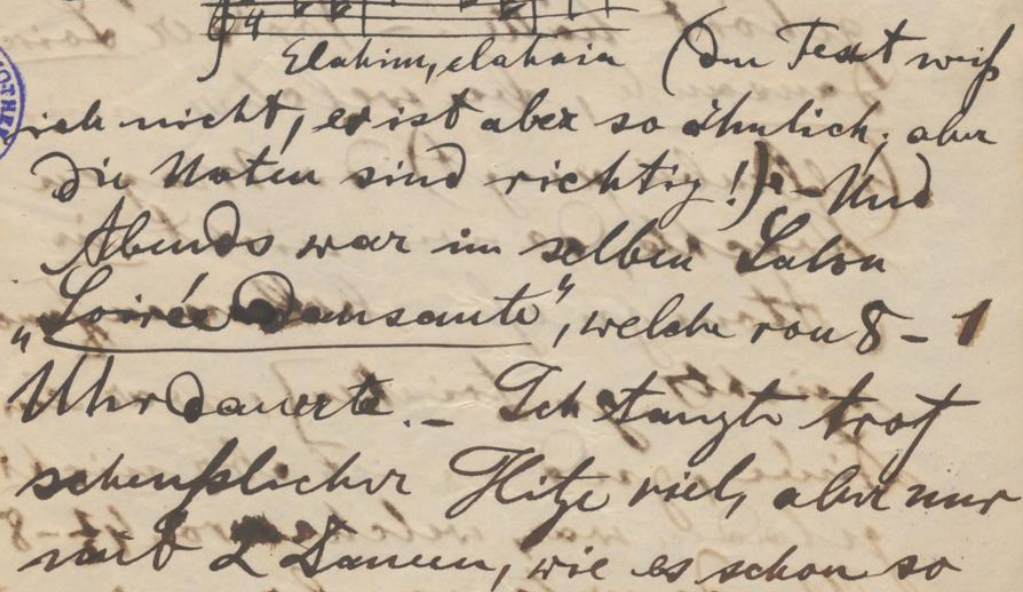 Elahim, elahaia (den Text weiß
ich nicht, er ist aber so ähnlich; aber
die Noten sind richtig!) – Und
Abends war im selben Salon
„Soirée Dansante“, welche von 8 – 1
Uhr dauerte. – Ich tanzte trotz
scheußlicher Hitze viel, aber nur
mit 2 Damen, wie es schon so